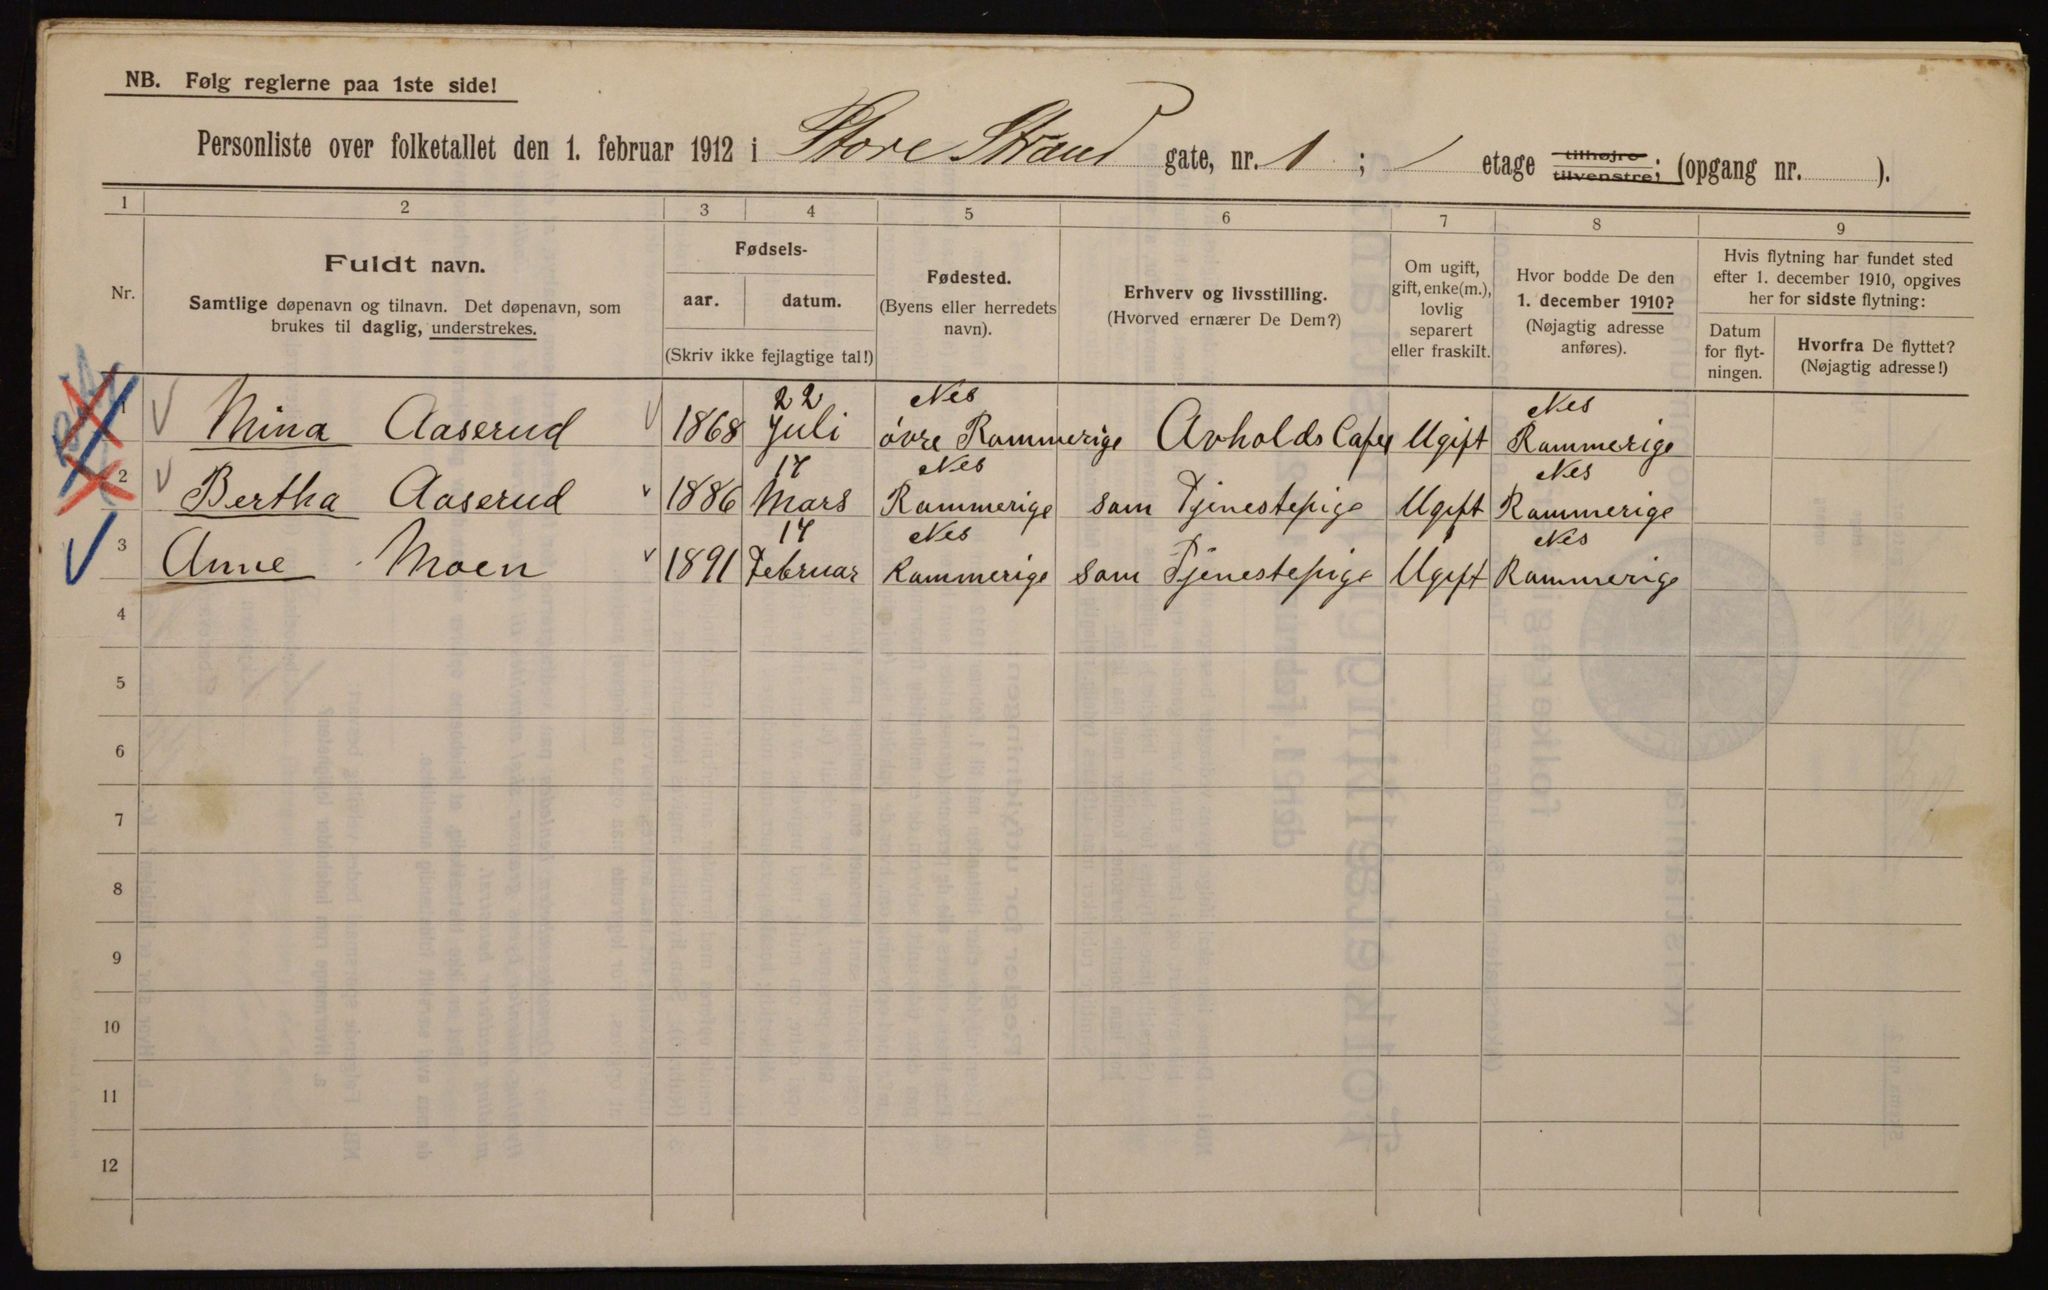 NB. Følg reglerne paa 1ste side!
Personliste over folketallet den 1. februar 1912 i Store Strand gate, nr. 1 ; 1 etage tilhøjre tilvenstre; (opgang nr. ).
1 2 3 4 5 6 7 8 9
Nr.
Fuldt navn.
Samtlige døpenavn og tilnavn. Det døpenavn, som
brukes til daglig, understrekes.
Fødsels-
aar. datum.
(Skriv ikke fejlagtige tal!)
Fødested.
(Byens eller herredets
navn).
Erhverv og livsstilling.
(Hvorved ernærer De Dem?)
Om ugift,
gift, enke(m.),
lovlig
separert
eller fraskilt.
Hvor bodde De den
1. december 1910?
(Nøjagtig adresse
anføres).
Hvis flytning har fundet sted
efter 1. december 1910, opgives
her for sidste flytning:
Datum
for flyt-
ningen.
Hvorfra De flyttet?
(Nøjagtig adresse!)
22 Nes Nes
1 Mina Aaserud 1868 Juli øvre Rommerige Avholds Cafe Ugift Rommerige
17 Nes Nes
2 Bertha Aaserud 1886 Mars Rommerige som Tjenestepige Ugift Rommerige
17 Nes Nes
3 Anne Moen 1891 Februar Rommerige som Tjenestepige Ugift Rommerige
4
5
6
7
8
9
10
11
12